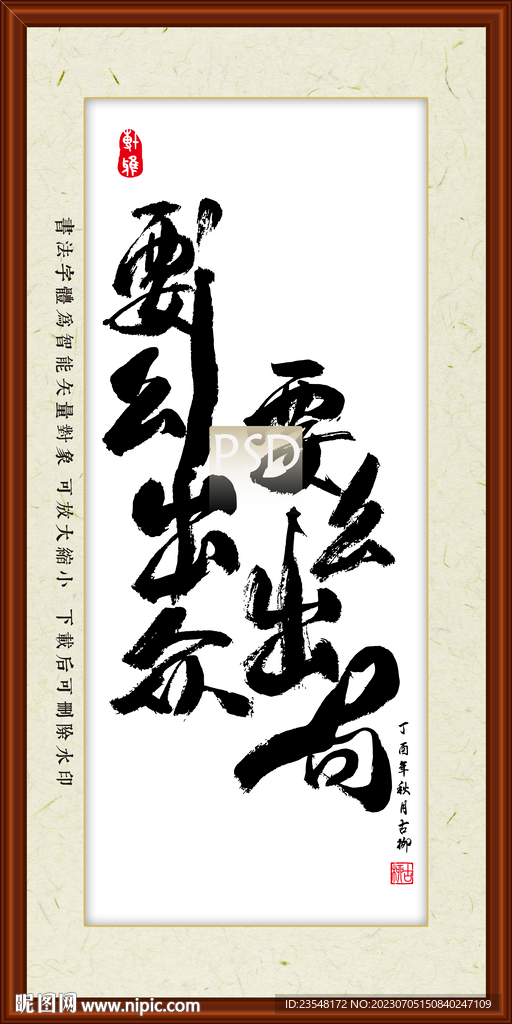 軒雅
要么出众
要么出局
丁酉年秋月古柳
書法字體為智能矢量對象 可放大縮小 下載后可刪除水印
PSD
昵图网 www.nipic.com
ID:23548172 NO:20230705150840247109